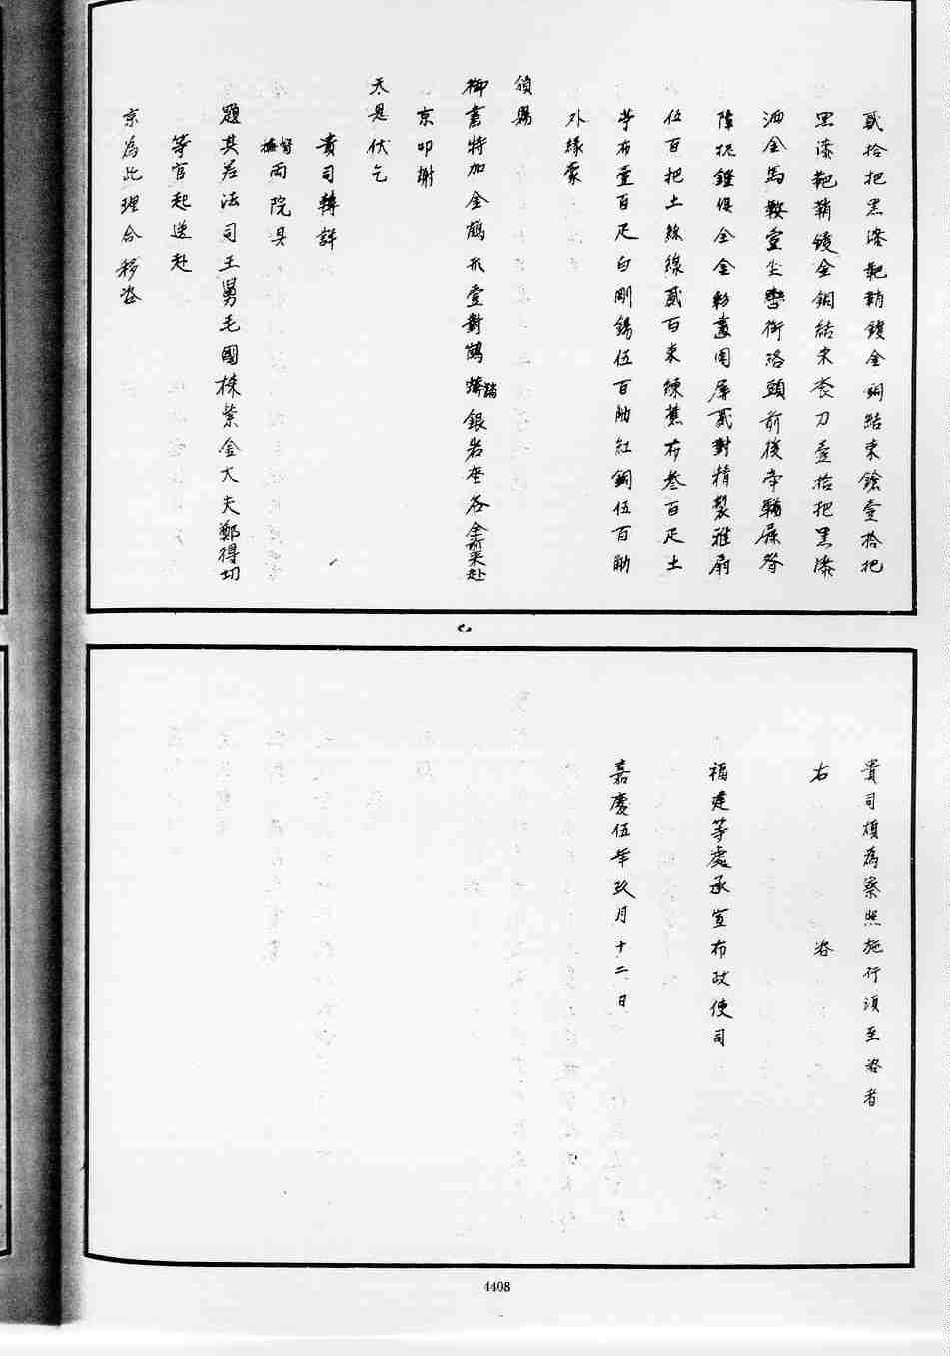 貳拾把黑漆靶鞘鍍金銅結束鎗壹拾把
黑漆靶鞘鍍金銅結束袞刀壹拾把黑漆
洒金馬鞍壹坐轡銜絡頭前後牽鞦屜脊
障坭鐙俱全金彩畫圍屏貳對精製雅扇
伍百把土絲線貳百束練蕉布叁百疋土
苧布壹百疋白剛錫伍百觔紅銅伍百觔
外緣蒙
頒賜
御書特加金鶴形壹對鶴踏銀岩座各全前來赴
京叩謝
天恩伏乞
貴司轉詳
督撫兩院具
題其差法司王舅毛國棟紫金大夫鄭得功
等官起送赴
京為此理合移咨
貴司煩為察照施行須至咨者
右　咨
福建等處承宣布政使司
嘉慶伍年玖月十二日
4408